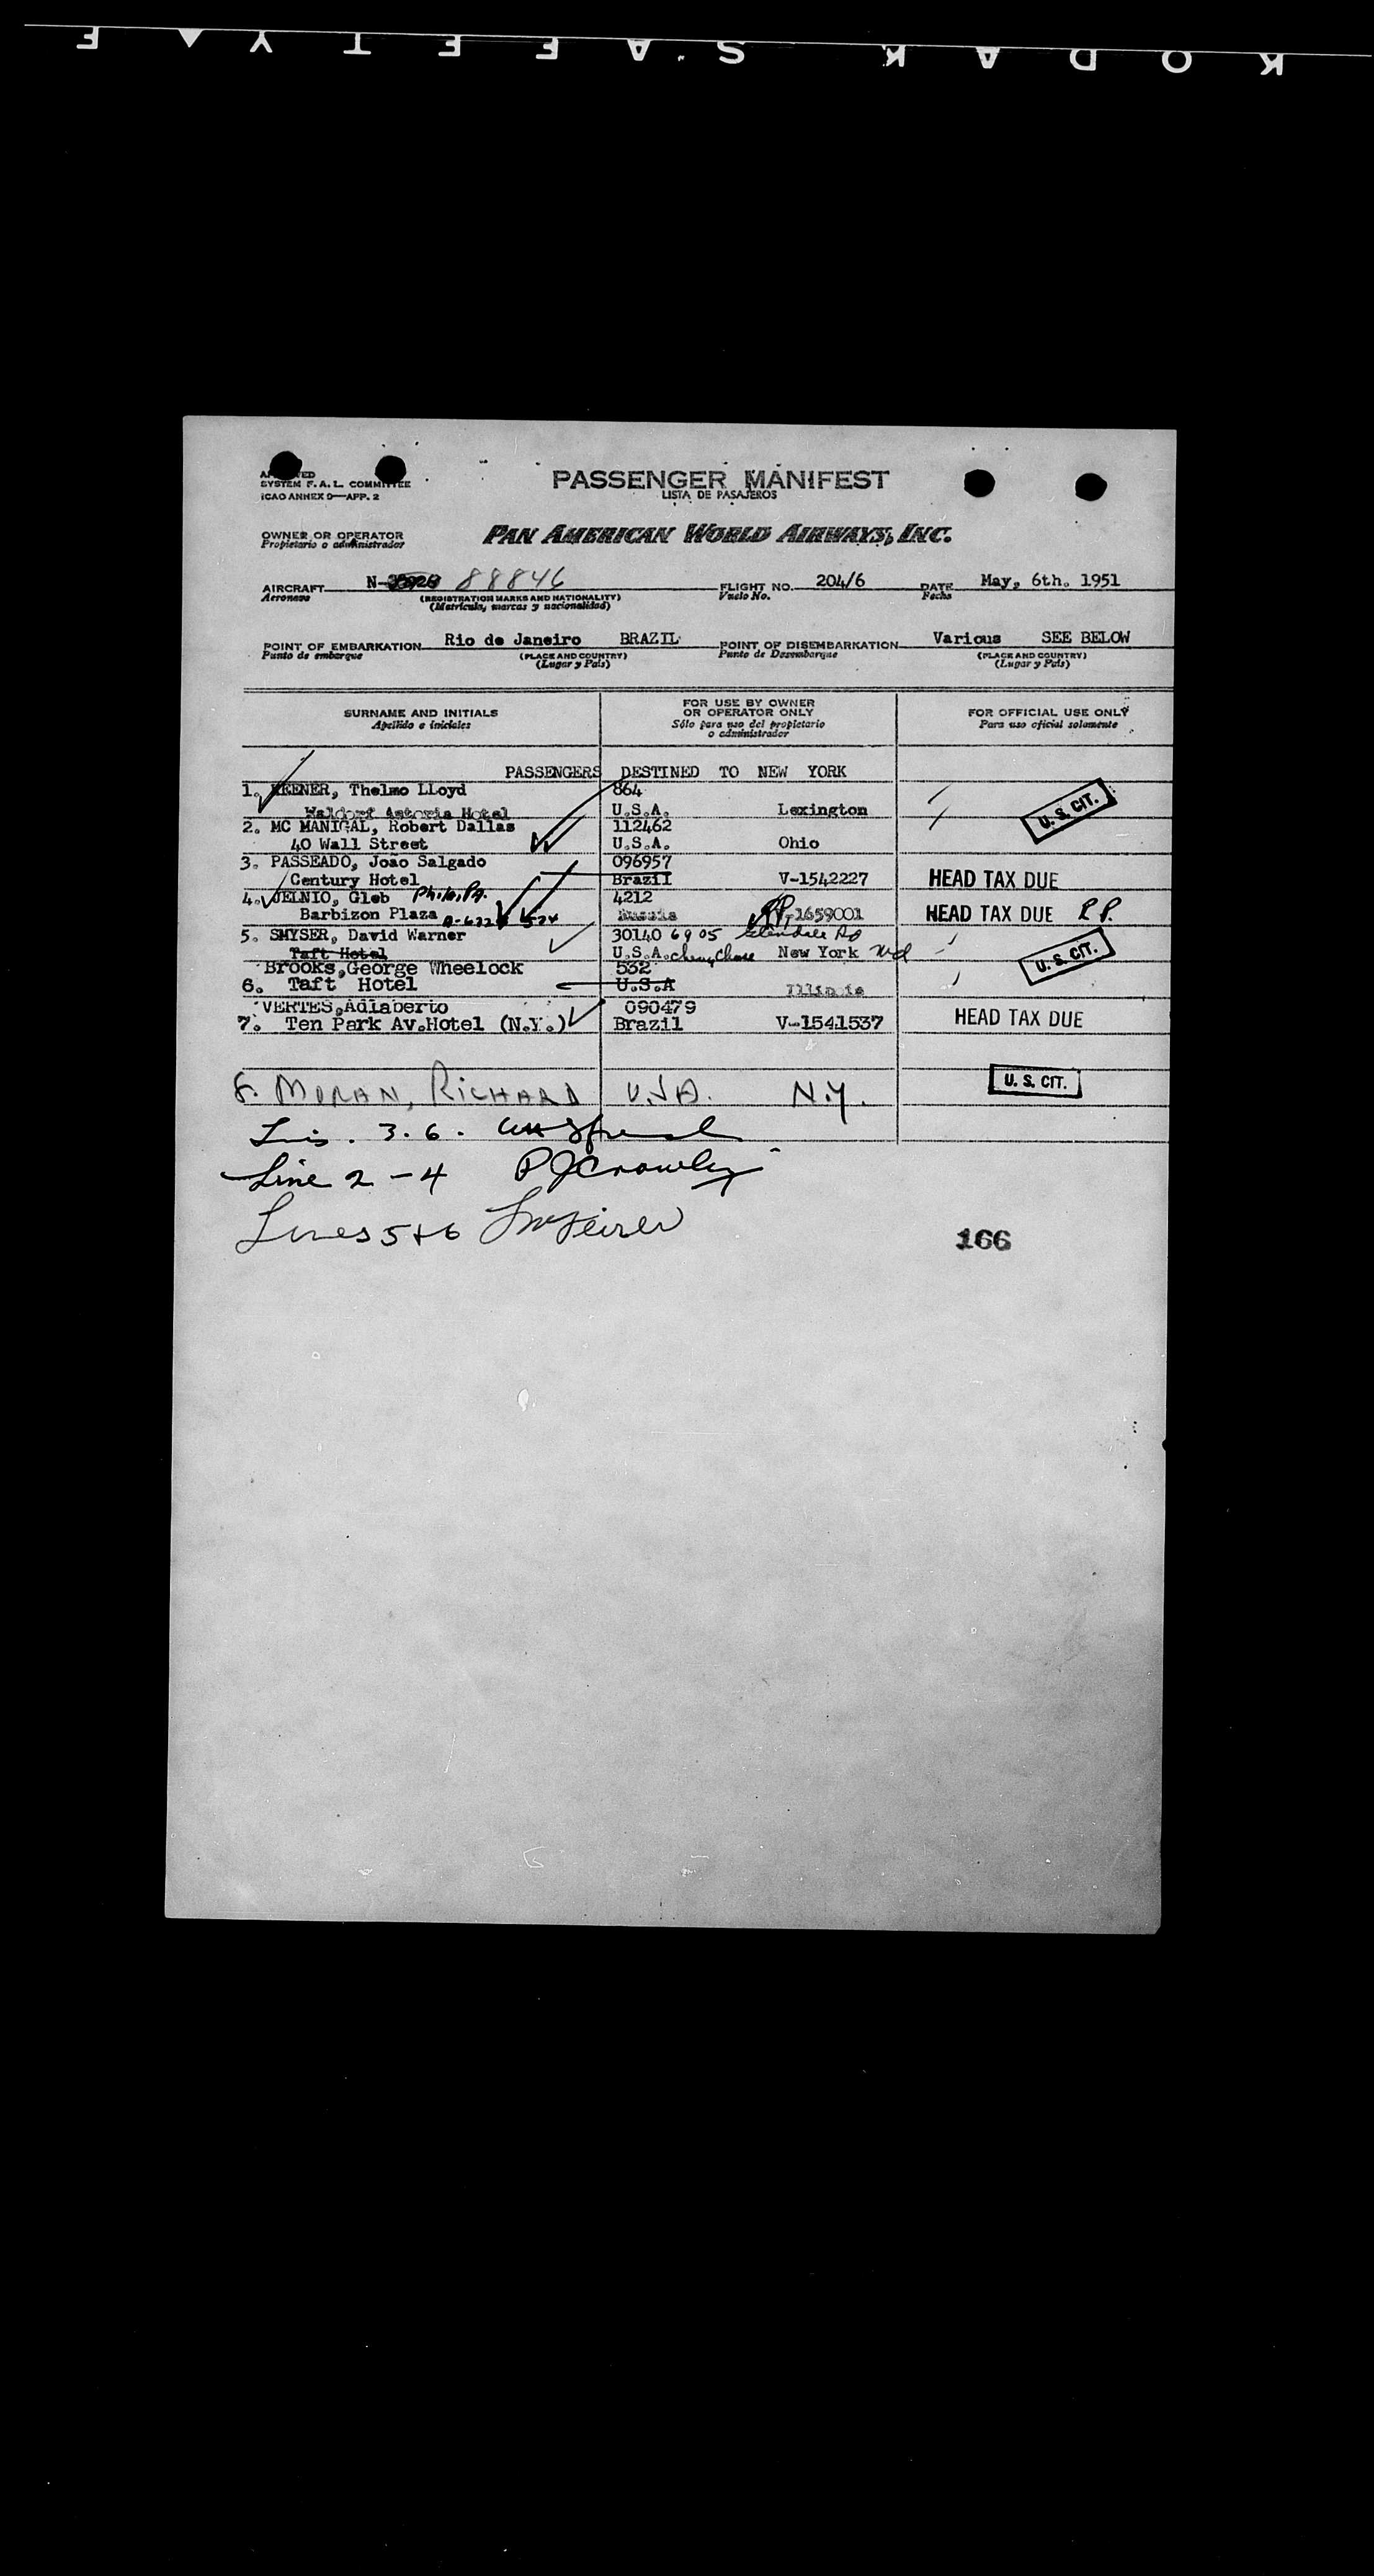 KODAK SAFETY F
APPROVED
SYSTEM F.A.L. COMMITTEE
ICAO ANNEX 9—APP. 2
PASSENGER MANIFEST
LISTA DE PASAJEROS
OWNER OR OPERATOR
Propietario o administrador
PAN AMERICAN WORLD AIRWAYS, INC.
AIRCRAFT N- 88846 FLIGHT NO. 204/6 DATE May, 6th. 1951
Aeronave (REGISTRATION MARKS AND NATIONALITY) Vuelo No. Fecha
(Matrícula, marcas y nacionalidad)
POINT OF EMBARKATION Rio de Janeiro BRAZIL POINT OF DISEMBARKATION Various SEE BELOW
Punto de embarque (PLACE AND COUNTRY) Punto de Desembarque (PLACE AND COUNTRY)
(Lugar y País) (Lugar y País)
SURNAME AND INITIALS
Apellido e iniciales
FOR USE BY OWNER
OR OPERATOR ONLY
Sólo para uso del propietario
o administrador
FOR OFFICIAL USE ONLY
Para uso oficial solamente
PASSENGERS DESTINED TO NEW YORK
1. KEENER, Thelmo LLoyd 864
Waldorf Astoria Hotel U.S.A. Lexington U. S. CIT.
2. MC MANIGAL, Robert Dallas 112462
40 Wall Street U.S.A. Ohio
3. PASSEADO, João Salgado 096957
Century Hotel Brazil V-1542227 HEAD TAX DUE
4. JELNIO, Gleb Phila, Pa. 4212
Barbizon Plaza Russia 1659001 HEAD TAX DUE R.P.
5. SMYSER, David Warner 30140 6905 Glendale Rd
Taft Hotel U.S.A. Chevy Chase New York Md U. S. CIT.
Brooks,George Wheelock 532
6. Taft Hotel U.S.A Illinois
VERTES,Adlaberto 090479
7. Ten Park Av.Hotel (N.Y.) Brazil V-1541537 HEAD TAX DUE
8. MORAN, RICHARD U.S.A. N.Y. U. S. CIT.
3. 6.
Line 2-4 PJCrowley
Lines 5+6
166